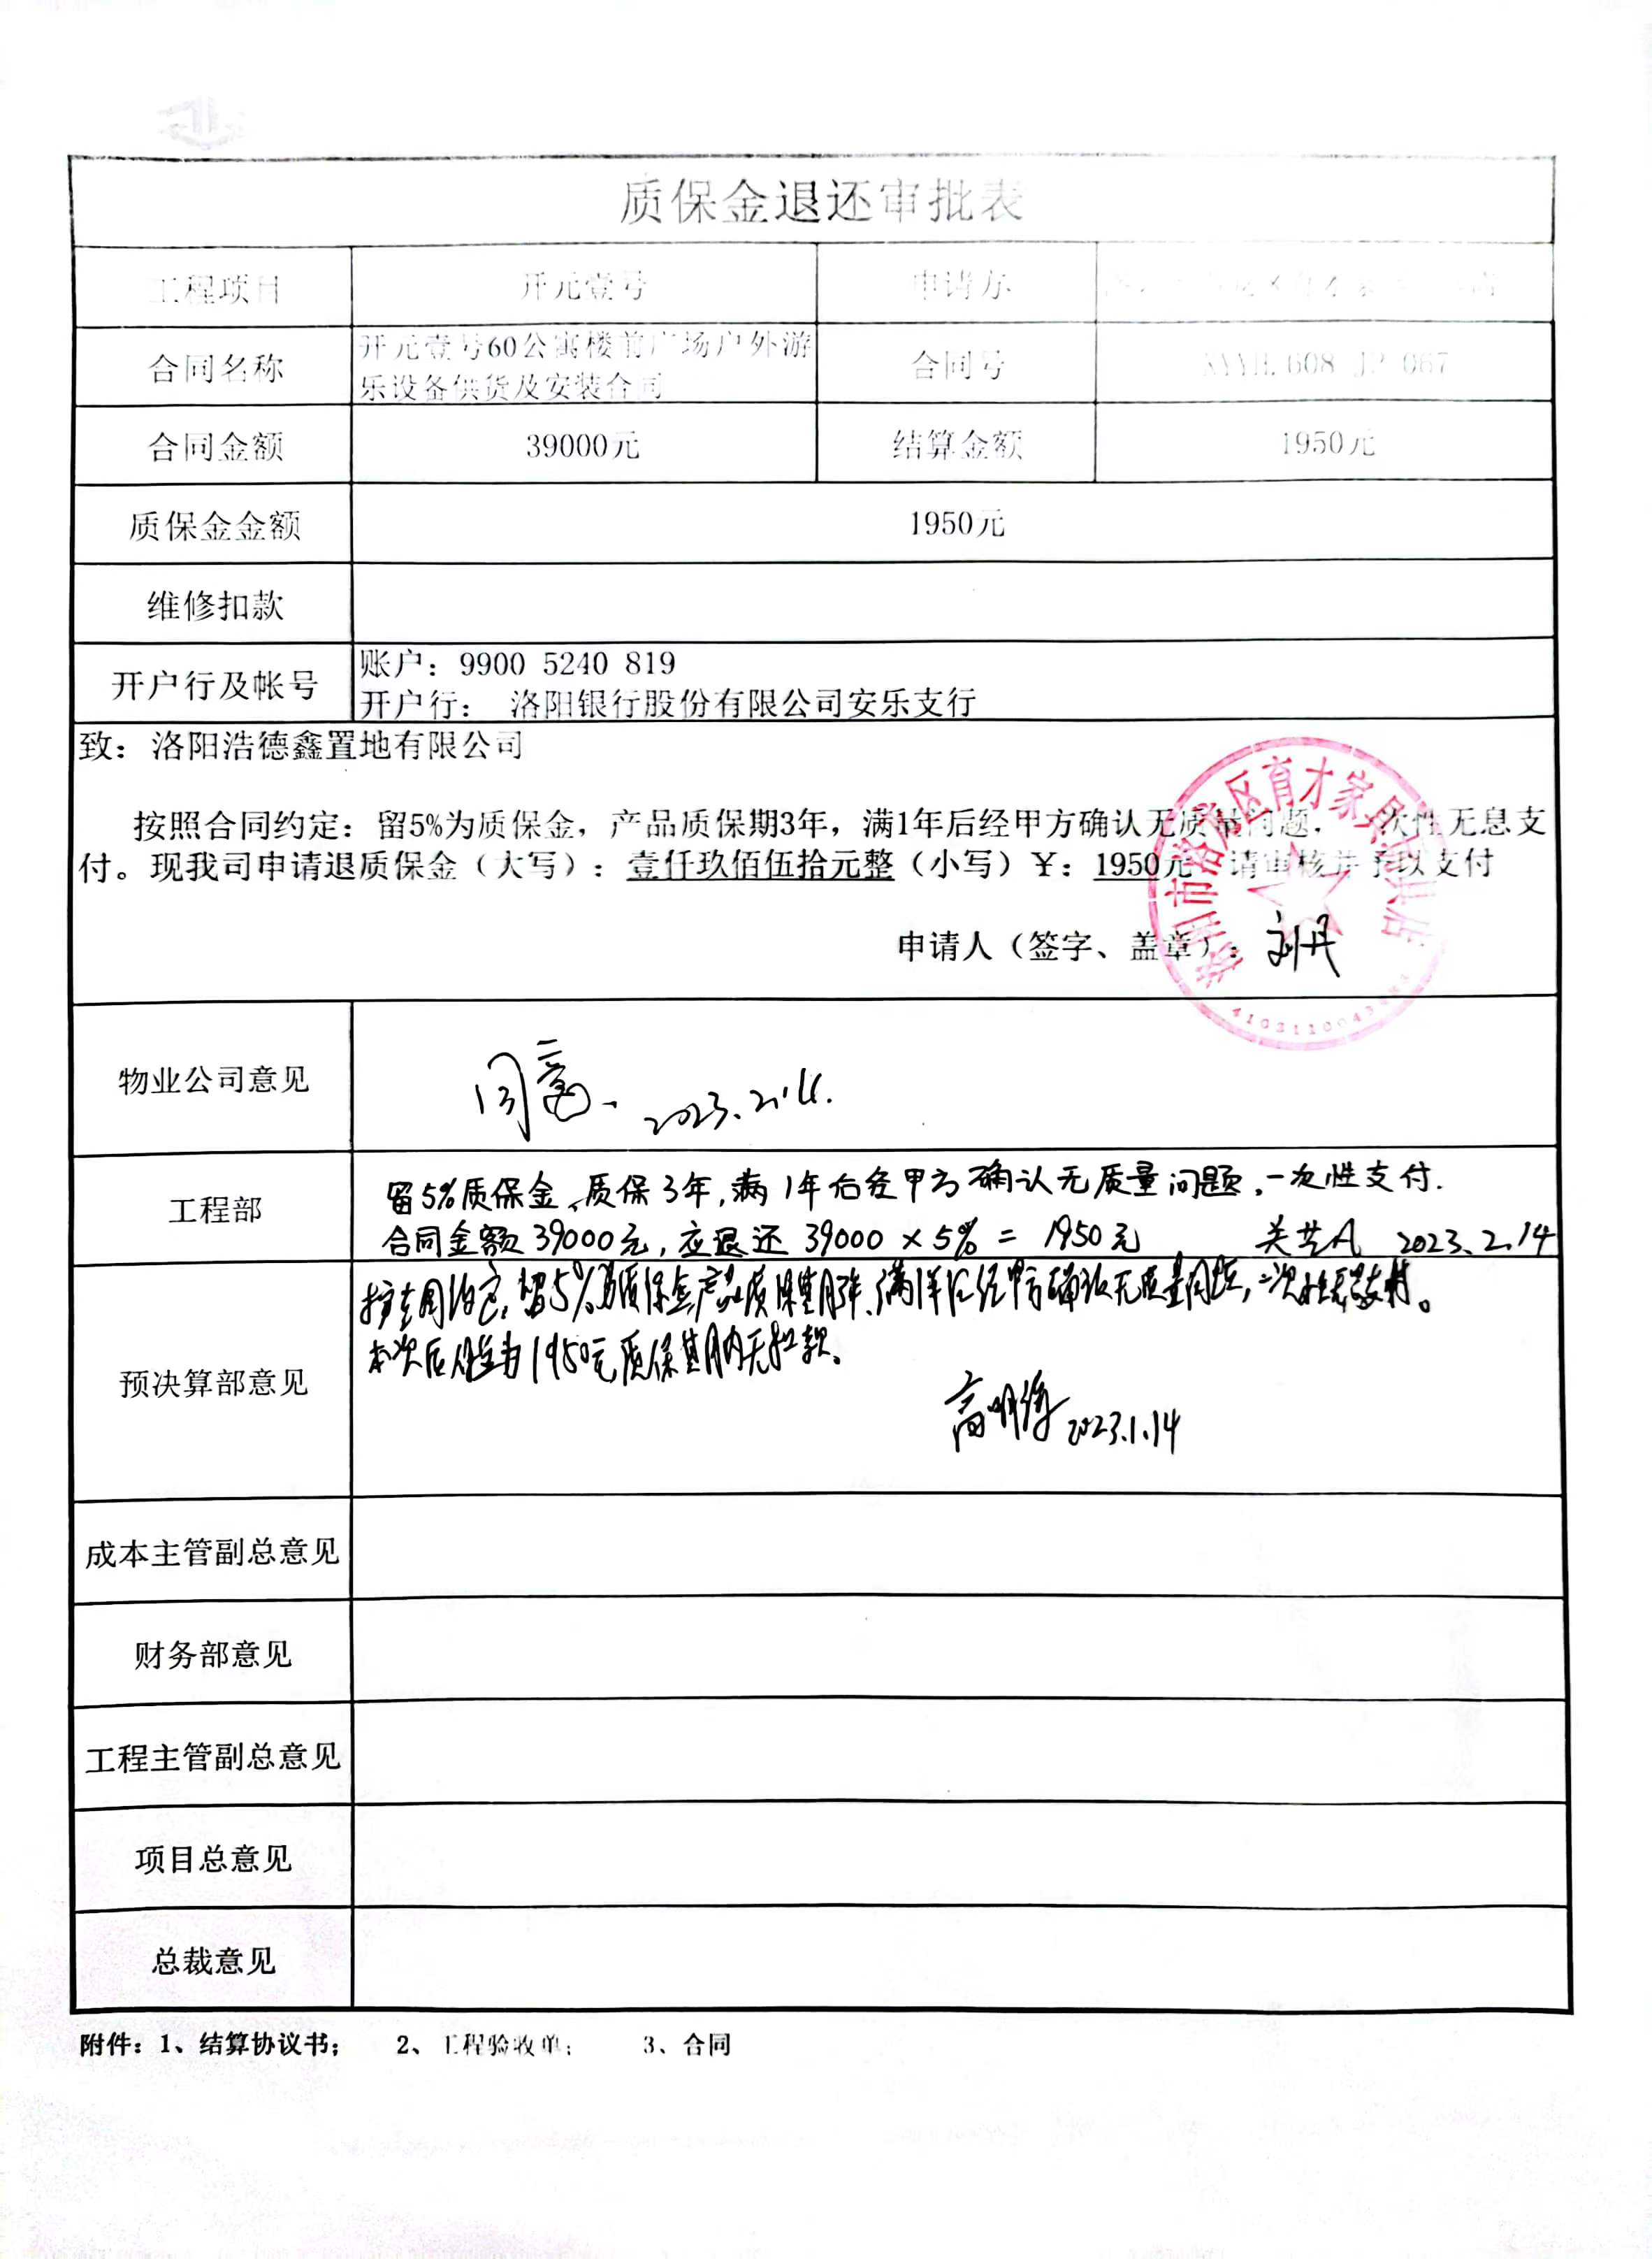 质保金退还审批表
工程项目 开元壹号 申请方
合同名称 开元壹号60公寓楼前广场户外游 合同号
乐设备供货及安装合同
合同金额 39000元 结算金额 1950元
质保金金额 1950元
维修扣款
开户行及帐号 账户：9900 5240 819
开户行： 洛阳银行股份有限公司安乐支行
致：洛阳浩德鑫置地有限公司
按照合同约定：留5%为质保金，产品质保期3年，满1年后经甲方确认无质量问题， 次性无息支
付。现我司申请退质保金（大写）：壹仟玖佰伍拾元整（小写）￥：1950元 请审核并予以支付
申请人（签字、盖章）：刘丹
洛阳市洛龙区育才家具
物业公司意见 同意. 2023.2.14.
工程部 留5%质保金、质保3年,满1年后经甲方确认无质量问题,一次性支付.
合同金额39000元,应退还39000×5%=1950元 2023.2.14
留5%为质保金,产品质保期 年,满1年后经甲方确认无质量问题,一次性无息支付。
预决算部意见 1950元质保期内无扣款。
2023.1.14
成本主管副总意见
财务部意见
工程主管副总意见
项目总意见
总裁意见
附件：1、结算协议书； 2、工程验收单； 3、合同